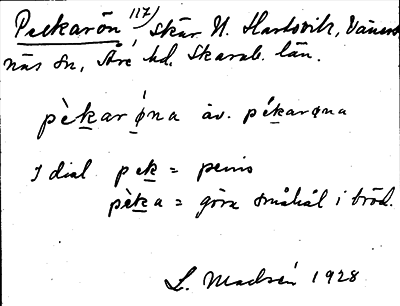 Peckarön 117) Skär N. Hartsvik, Väners-
näs sn, Åre hd. Skarab. län.
pèkarǿna äv. pékarøna
I dial pek = penis
pèka = göra småhål i bröd.
L. Madsén 1928